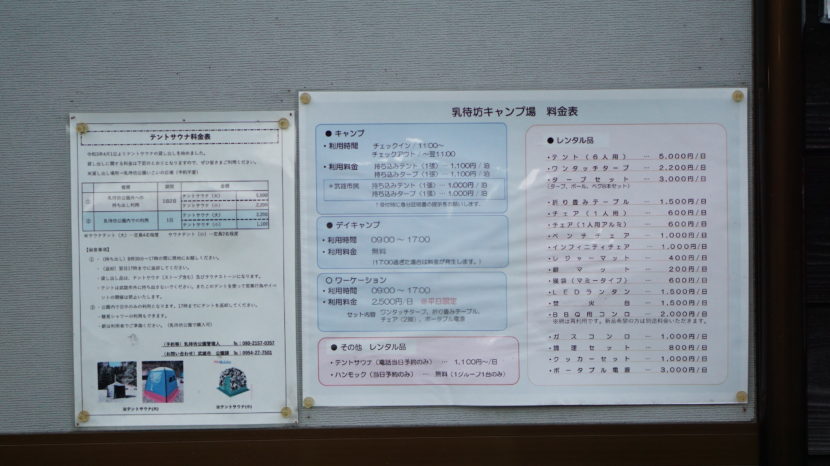 テントサウナ料金表
令和3年4月1日よりテントサウナの貸し出しを始めました。
貸し出しに関する料金は下記のとおりとなりますので、ぜひ皆さまご利用ください。
種類
期間
金額
①
乳待坊公園内外への
持ち出し利用
1泊2日
テントサウナ(大)
テントサウナ(小)
2,200
②
乳待坊公園内での利用
1日
テントサウナ(大)
2,200
テントサウナ(小)
1,100
※サウナテント(大)…定員4名程度 サウナテント(小)…定員2名程度
【留意事項】
(予約等)乳待坊公園管理人 ℡:080-2157-0357
(お問い合わせ)武雄市 公園課 ℡:0954-27-7501
※テントサウナ(大)
※テントサウナ(小)
乳待坊キャンプ場 料金表
● キャンプ
・利用時間 チェックイン/11:00~
チェックアウト/~翌11:00
・利用料金 持ち込みテント(1張) … 1,100円/泊
持ち込みタープ(1張) … 1,100円/泊
※武雄市民 持ち込みテント(1張) … 1,000円/泊
持ち込みタープ(1張) … 1,000円/泊
*受付時に身分証明書の提示をお願いします。
● デイキャンプ
・利用時間 09:00 ~ 17:00
・利用料金 無料
(17:00過ぎた場合は料金が発生します。)
〇 ワーケーション
・利用時間 09:00 ~ 17:00
・利用料金 2,500円/日 ※平日限定
セット内容 ワンタッチタープ、折り畳みテーブル、
チェア(2脚)、ポータブル電源
● その他 レンタル品
・テントサウナ(電話当日予約のみ) … 1,100円~/日
・ハンモック(当日予約のみ) … 無料(1グループ1台のみ)
● レンタル品
・テント(6人用) … 5,000円/日
・ワンタッチタープ … 2,200円/日
・タープセット … 3,000円/日
(タープ、ポール、ペグ8本セット)
・折り畳みテーブル … 1,500円/日
・チェア(1人用) … 600円/日
・チェア(1人用アルミ) … 600円/日
・ベンチチェア … 1,000円/日
・インフィニティチェア … 1,000円/日
・レジャーマット … 400円/日
・銀マット … 200円/日
・寝袋(マミータイプ) … 600円/日
・LEDランタン … 1,500円/日
・焚火台 … 1,500円/日
・BBQ用コンロ … 2,000円/日
※網は再利用です。新品希望の方は別途料金いただきます。
・ガスコンロ … 1,000円/日
・調理セット … 800円/日
・クッカーセット … 1,000円/日
・ポータブル電源 … 3,000円/日